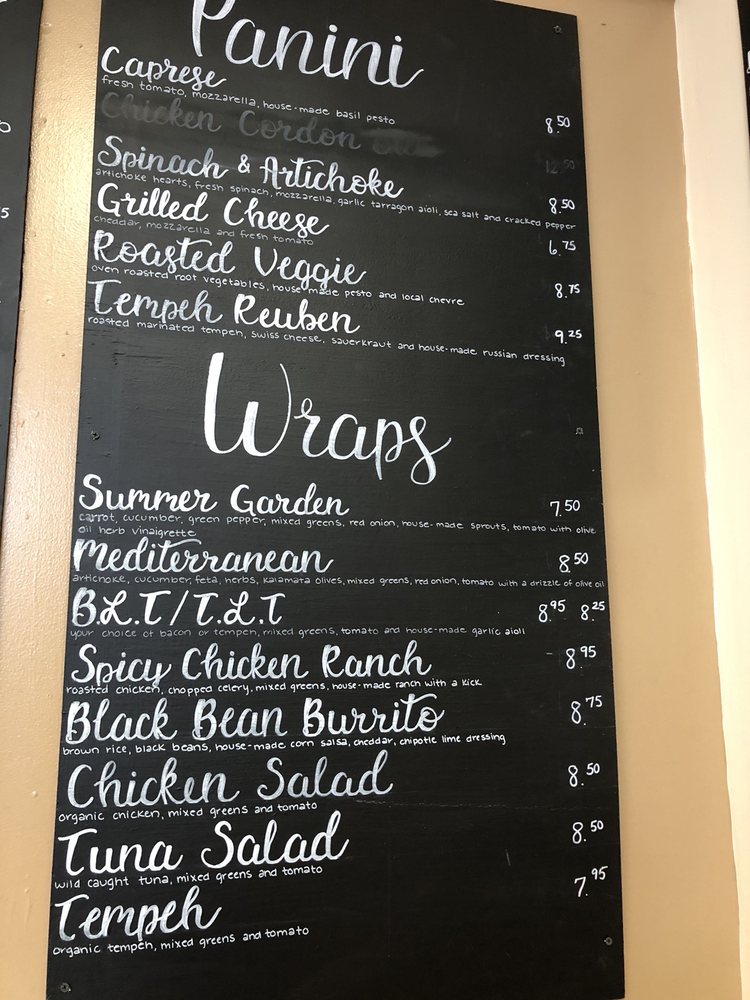 Panini
Caprese
fresh tomato, mozzarella, house-made basil pesto
8.50
Chicken Cordon
12.50
Spinach & Artichoke
artichoke hearts, fresh spinach, mozzarella, garlic tarragon aioli, sea salt and cracked pepper
8.50
Grilled Cheese
cheddar, mozzarella and fresh tomato
6.75
Roasted Veggie
oven roasted root vegetables, house made pesto and local chevre
8.75
Tempeh Reuben
roasted marinated tempeh, swiss cheese, sauerkraut and house-made russian dressing
9.25
Wraps
Summer Garden
7.50
carrot, cucumber, green pepper, mixed greens, red onion, house-made sprouts, tomato with olive
oil herb vinaigrette
Mediterranean
8.50
artichoke, cucumber, feta, herbs, kalamata olives, mixed greens, red onion, tomato with a drizzle of olive oil
B.L.T/T.L.T
8.95 8.25
your choice of bacon or tempeh, mixed greens, tomato and house-made garlic aioli
Spicy Chicken Ranch
8.95
roasted chicken, chopped celery, mixed greens, house-made ranch with a kick
Black Bean Burrito
8.75
brown rice, black beans, house-made corn salsa, cheddar, chipotle lime dressing
Chicken Salad
8.50
organic chicken, mixed greens and tomato
Tuna Salad
8.50
wild caught tuna, mixed greens and tomato
Tempeh
7.95
organic tempeh, mixed greens and tomato